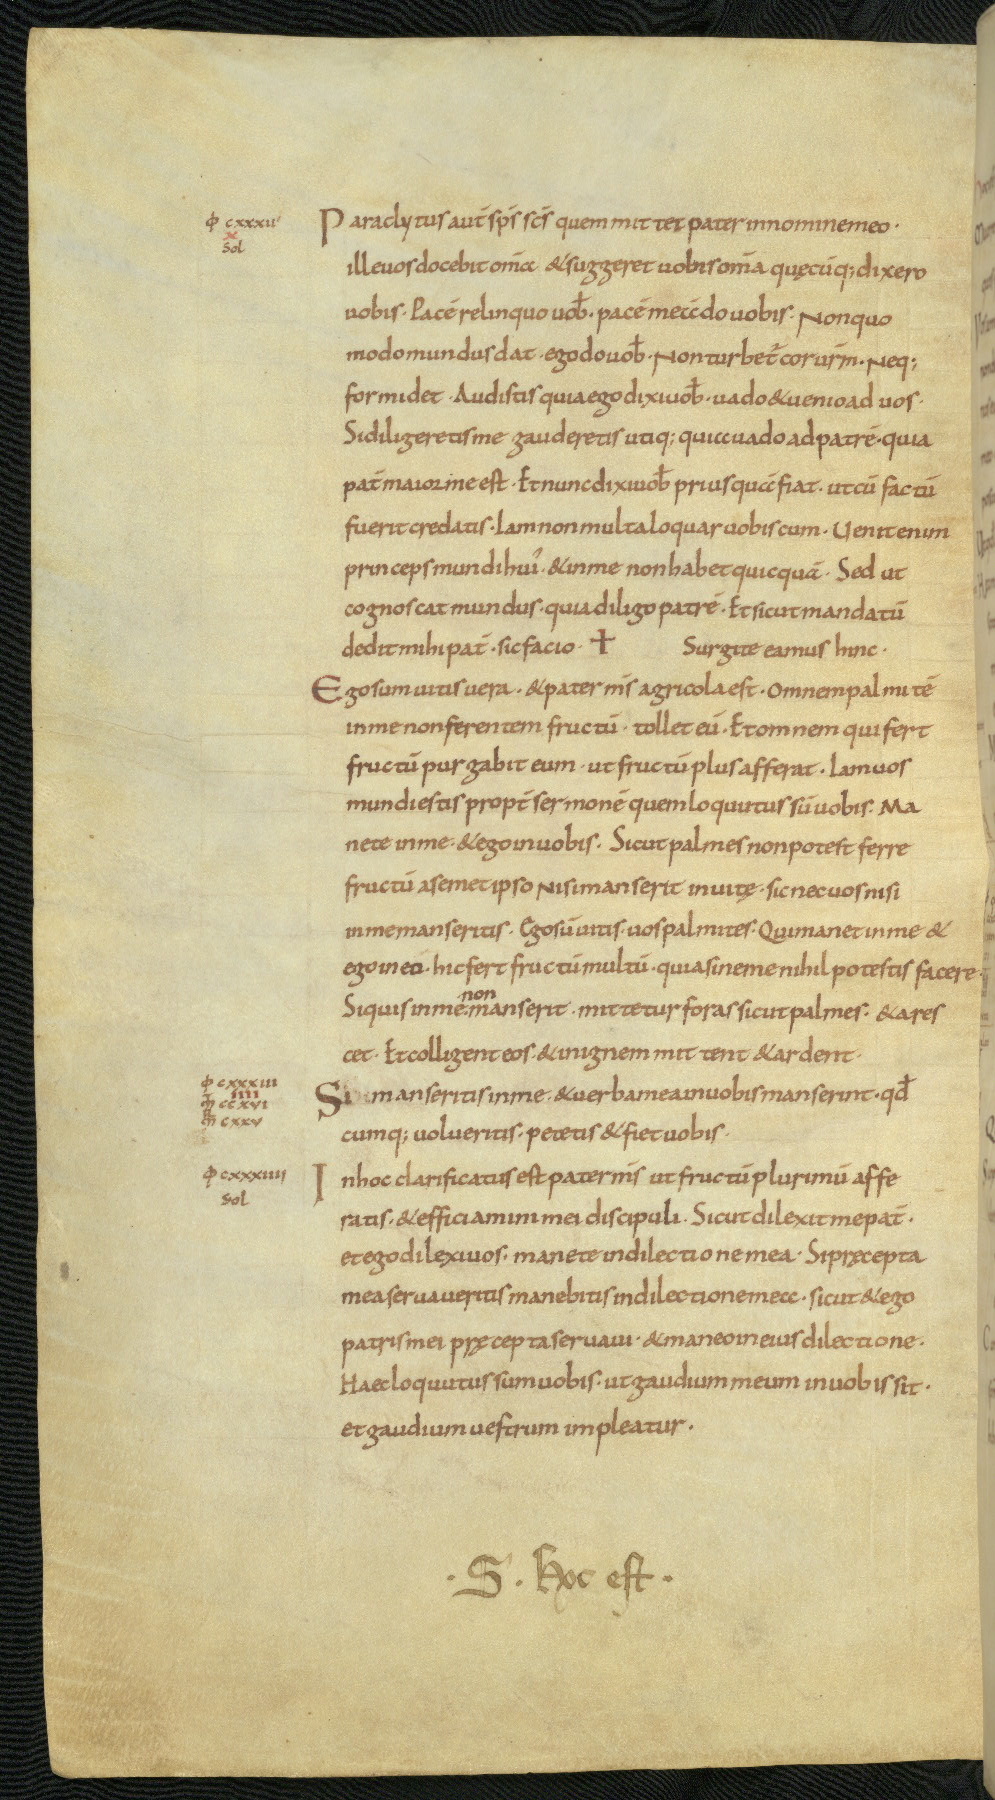 ϕ cxxxii
x
sol
Paraclytus aut̄ sp̄s sc̄s quem mittet pater in nomine meo·
ille vos docebit om̄a & suggeret vobis om̄a quęcūq; dixero
vobis· Pacē relinquo vob̄· pacē meā do vobis· Non quo
modo mundus dat· ego do vob̄· Non turbet̄ cor vr̄m· Neq;
formidet· Audistis quia ego dixi vob̄· vado & venio ad vos·
Si diligeretis me gauderetis utiq; quia vado ad patrē· quia
pat̄ maior me est· Et nunc dixi vob̄ priusquā fiat· ut cū factū
fuerit credatis· Iam non multa loquar vobiscum· Uenit enim
princeps mundi hui᾽· & in me non habet quicquā· Sed ut
cognoscat mundus· quia diligo patrē· Et sicut mandatū
dedit mihi pat̄· sic facio· ✝ Surgite eamus hinc·
Ego sum vitis vera· & pater m̄s agricola est· Omnem palmitē
in me non ferentem fructū· tollet eū· Et omnem qui fert
fructū purgabit eum· ut fructū plus afferat· Iam vos
mundi estis propt̄ sermonē quem loquutus sū vobis· Ma
nete in me· & ego in vobis· Sicut palmes non potest ferre
fructū a semet ipso nisi manserit in vitę· sic nec vos nisi
in me manseritis· Ego sū vitis· vos palmites· Qui manet in me &
ego in eo· hic fert fructū multū· quia sine me nihil potestis facere·
non
Si quis in me manserit· mittetur foras sicut palmes· & ares
cet· Et colligent eos· & in ignem mittent & ardent·
ϕ cxxxiii
iiii
m̄ ccxvi
m̄ cxxv
Si manseritis in me· & verba mea in vobis manserint· qd̄
cumq; volueritis· petetis & fiet vobis·
ϕ cxxxiiii
sol
In hoc clarificatus est pater m̄s ut fructū plurimū affe
ratis· & efficiamini mei discipuli· Sicut dilexit me pat̄·
et ego dilexi vos· manete in dilectione mea· Si pręcepta
mea servaveritis manebitis in dilectione mea· sicut & ego
patris mei pręcepta servavi· & maneo in eius dilectione·
Haec loquutus sum vobis· ut gaudium meum in vobis sit·
et gaudium vestrum impleatur·
· S · Hoc est ·